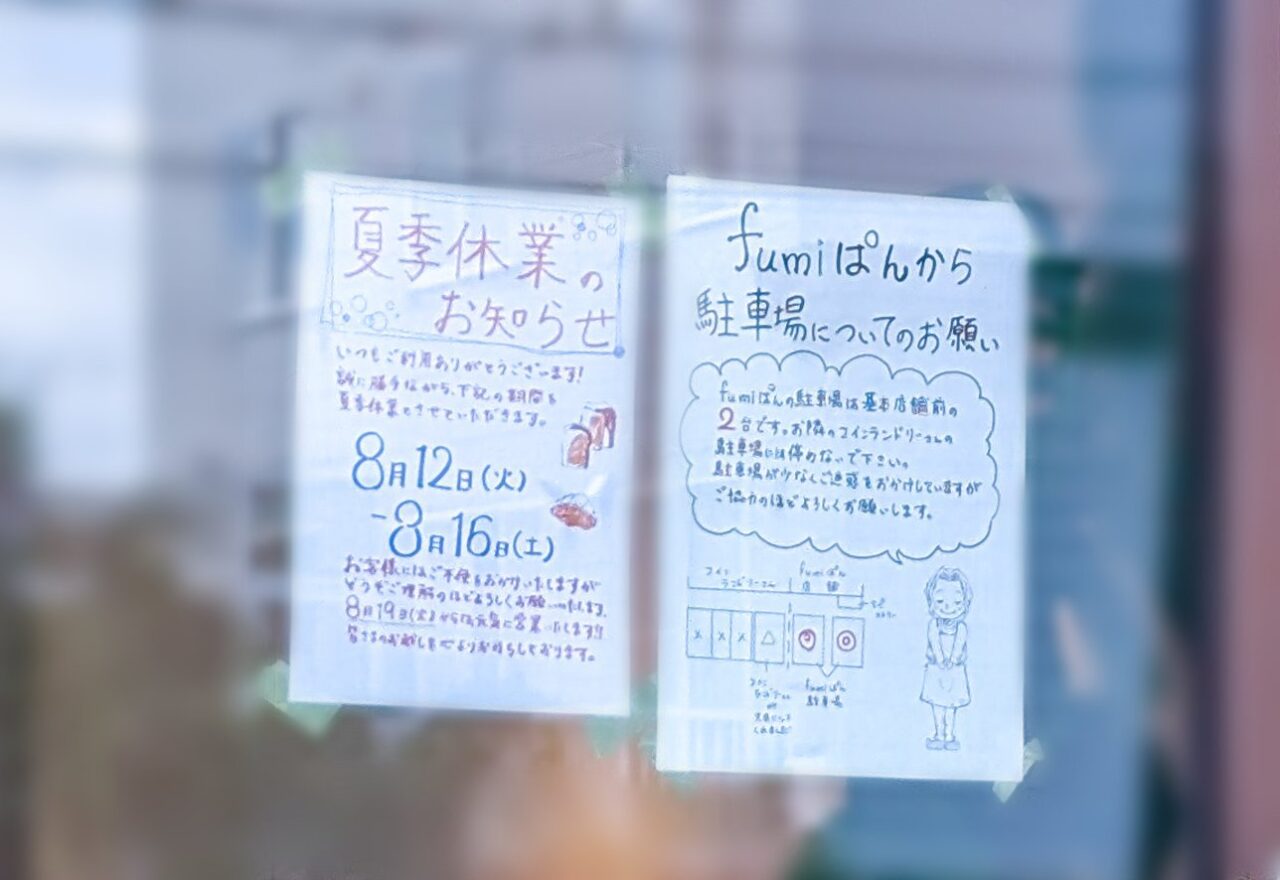 夏季休業の
お知らせ
いつもご利用ありがとうございます!
誠に勝手ながら、下記の期間を
夏季休業とさせていただきます。
8月12日(火)
-8月16日(土)
お客様にはご不便をおかけいたしますが
どうぞご理解のほどよろしくお願いいたします。
8月19日(火)から元気に営業いたします!!
皆さまのお越しを心よりお待ちしております。
fumiぱんから
駐車場についてのお願い
fumiぱんの駐車場は基本店舗前の
2台です。お隣のコインランドリーさんの
駐車場には停めないで下さい。
駐車場が少なくご迷惑をおかけしていますが
ご協力のほどよろしくお願いします。
コイン
ランドリーさん
fumiぱん
店舗
× × × △ ◎ ◎
fumiぱん
駐車場